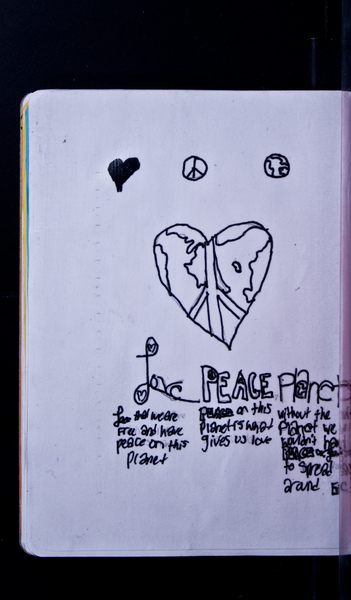 Love PEACE Planet
Love that we are
Free and have
peace on this
Planet
PEACE on this
Planet is what
gives us love
without the
Planet we
wouldn't
PEACE
to spread
around